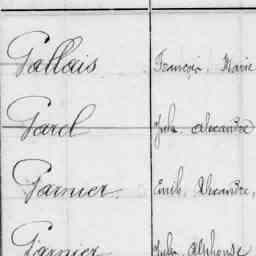 Gallais François Marie
Garel Jules Alexandre
Garnier Émile Alexandre,
Garnier Jules Alphonse